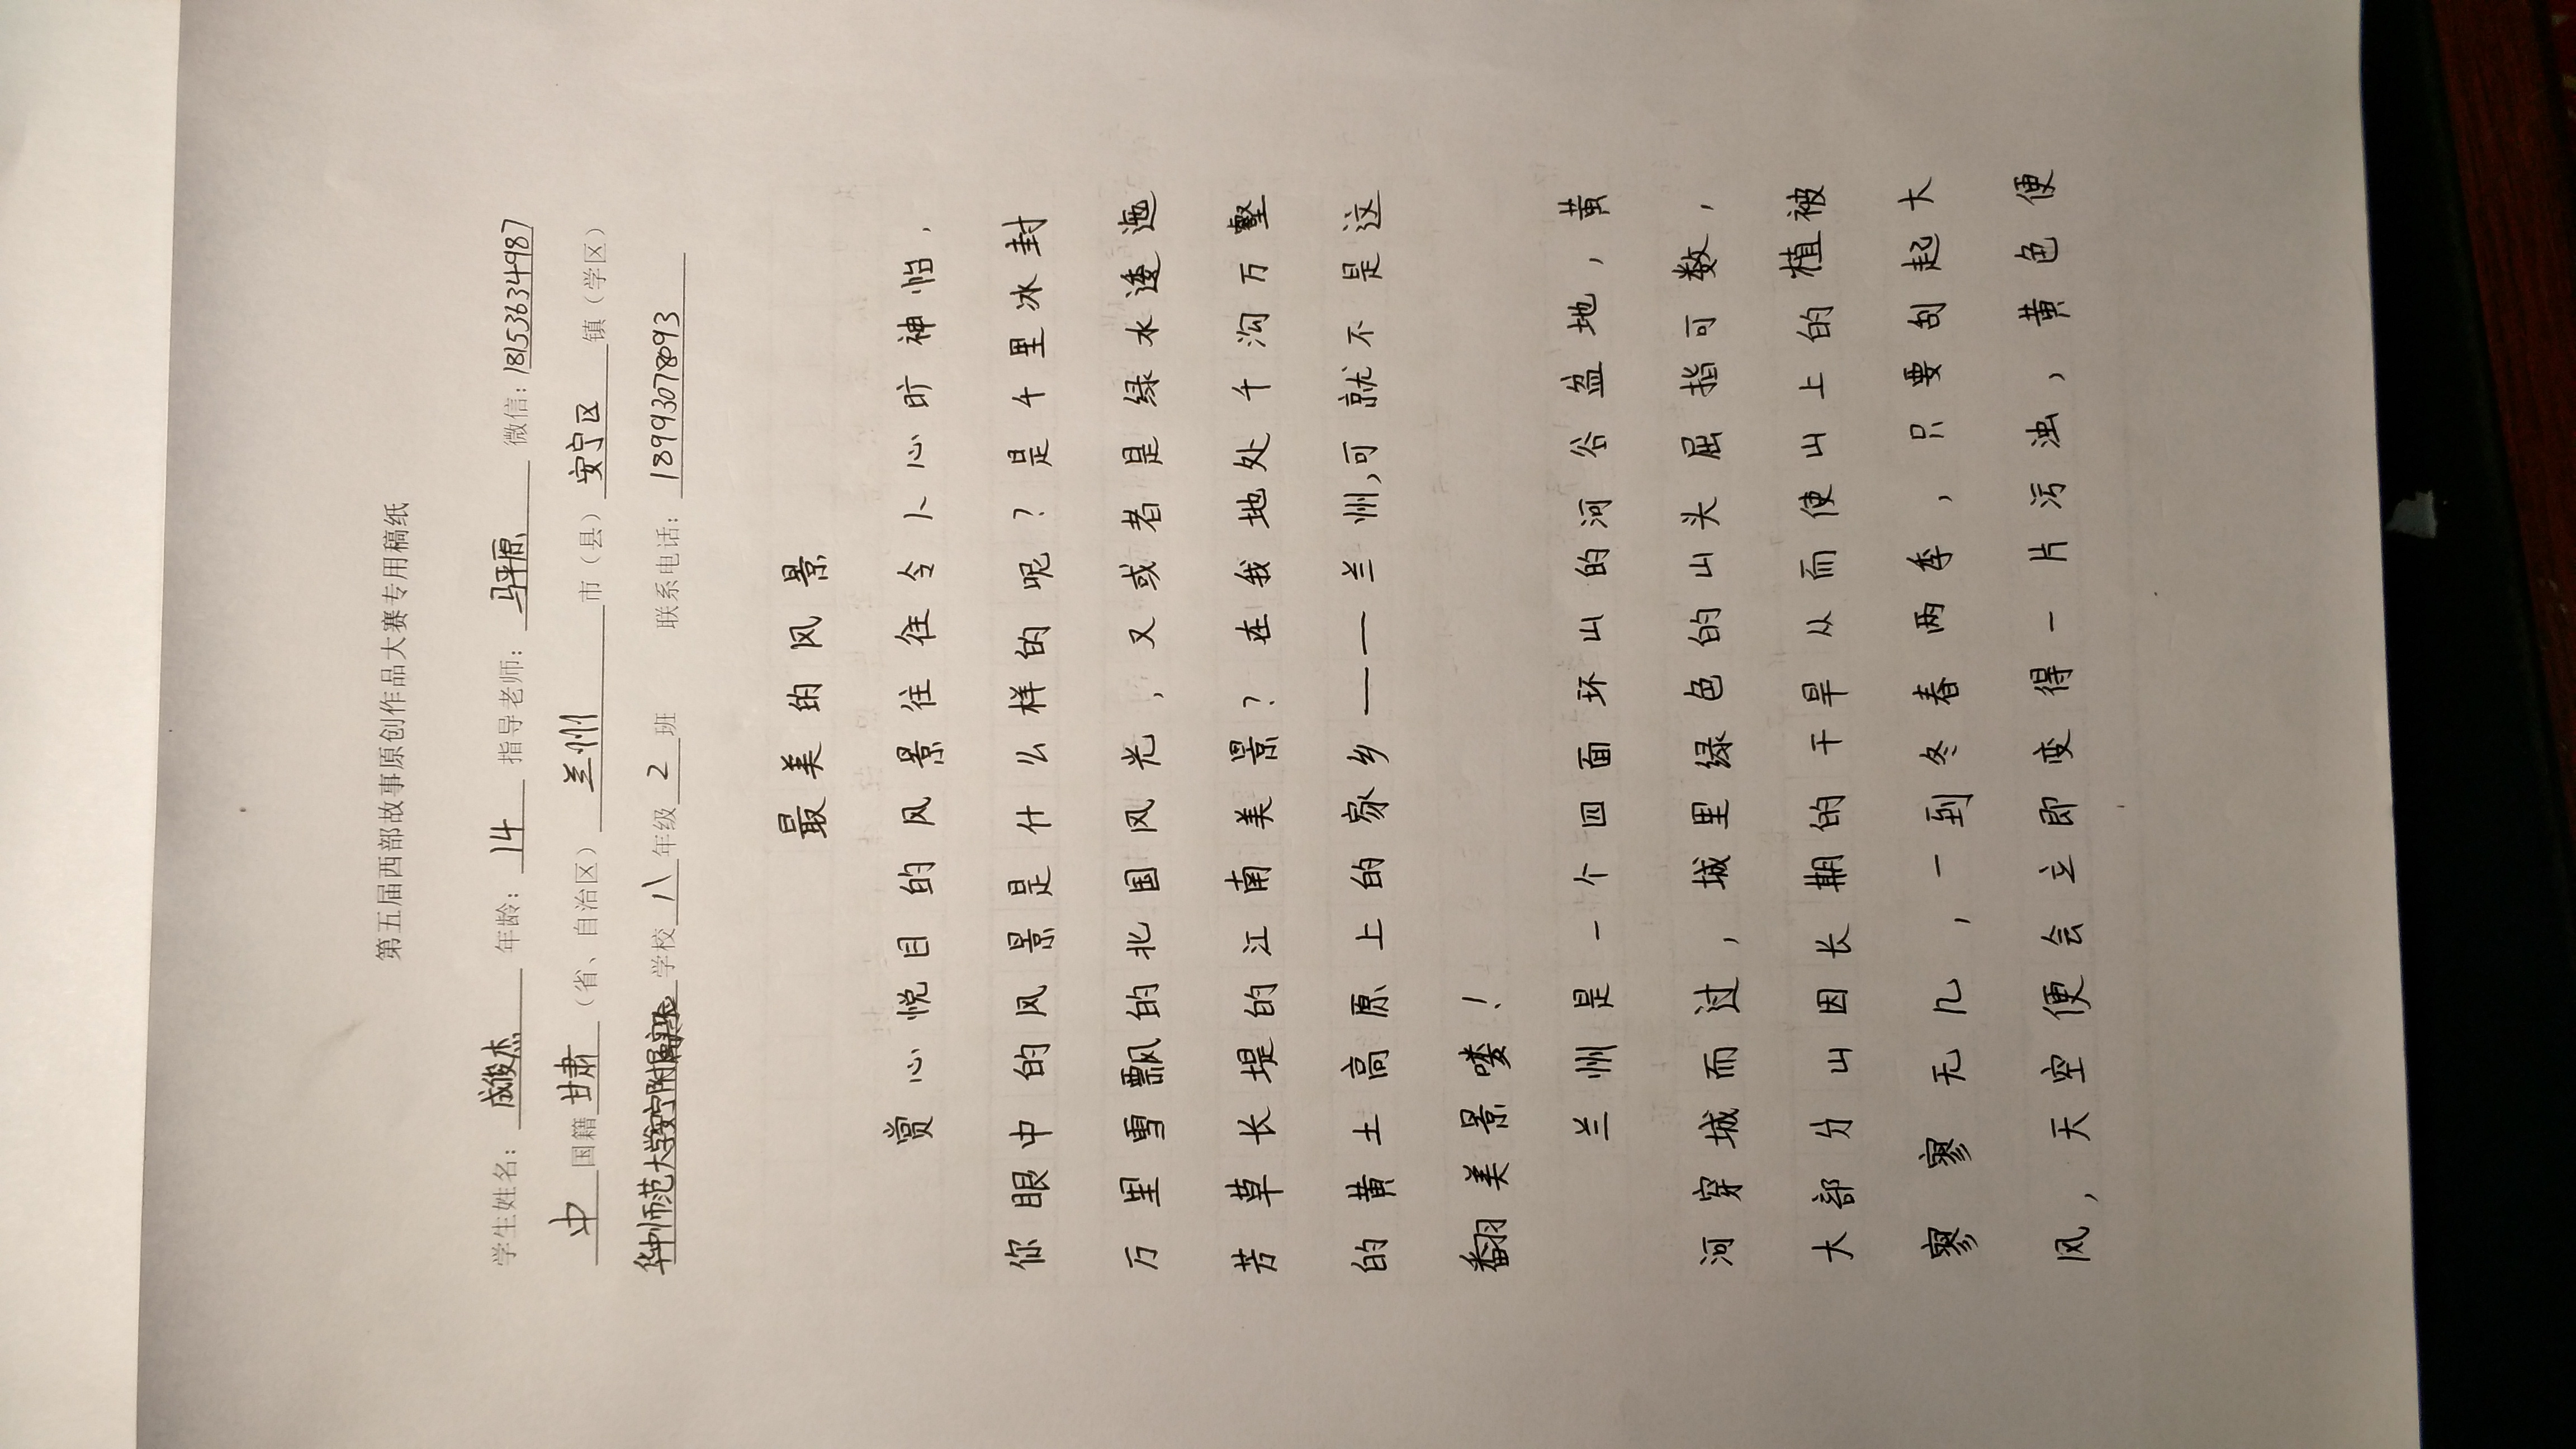 第五届西部故事原创作品大赛专用稿纸
学生姓名：成俊杰 年龄：14 指导老师：马平原 微信：18153634987
中 国籍 甘肃（省、自治区）兰州 市（县）安宁区 镇（学区）
华中师范大学安宁附属实验 学校 八 年级 2 班 联系电话：18993078093
最美的风景
赏心悦目的风景往往令人心旷神怡.
你眼中的风景是什么样的呢?是千里冰封
万里雪飘的北国风光,又或者是绿水逶迤
芳草长堤的江南美景?在我地处千沟万壑
的黄土高原上的家乡——兰州,可就不是这
翻美景喽!
兰州是一个四面环山的河谷盆地,黄
河穿城而过,城里绿色的山头屈指可数,
大部分山因长期的干旱从而使山上的植被
寥寥无几,一到冬春两季,只要刮起大
风,天空便会立即变得一片污浊,黄色便